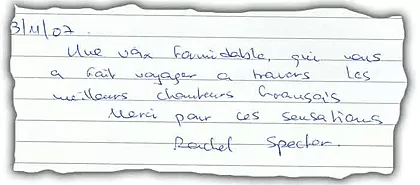 3/11/07.
Une voix formidable, qui nous
a fait voyager a travers les
meilleurs chanteurs français
Merci pour ces sensations
Rachel Spector.